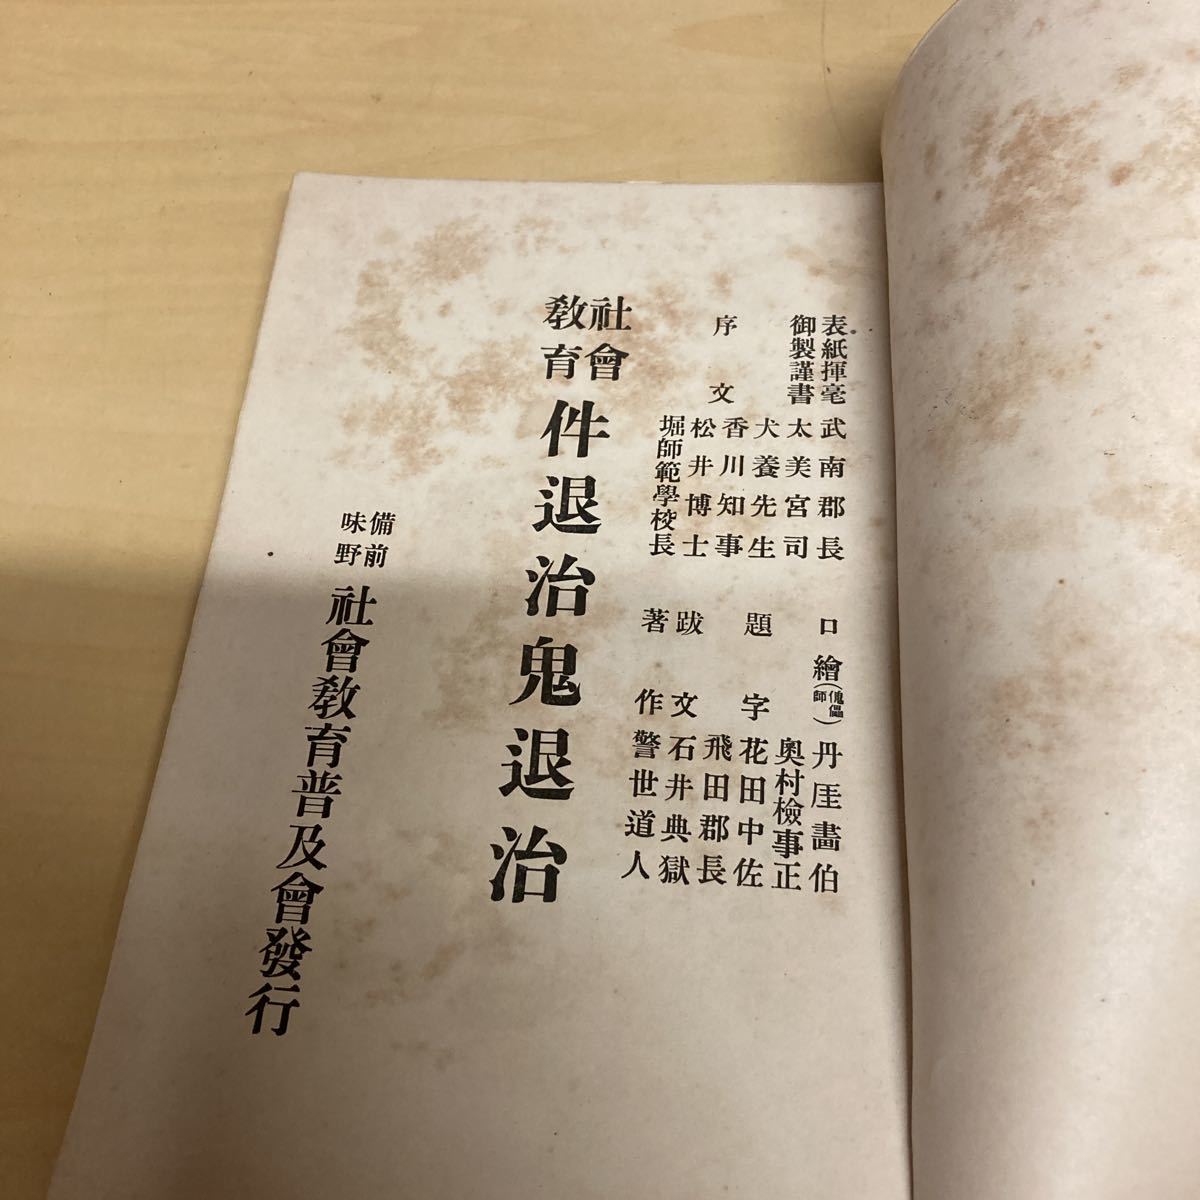 表紙揮毫 武南郡長
御製謹書 太美宮司
犬養先生
序文 香川知事
松井博士
堀師範學校長
口繪(傀儡師) 丹厓畫伯
奧村檢事正
題字 花田中佐
飛田郡長
跋文 石井典獄
著作 警世道人
社會教育 件退治鬼退治
備前味野 社會教育普及會發行